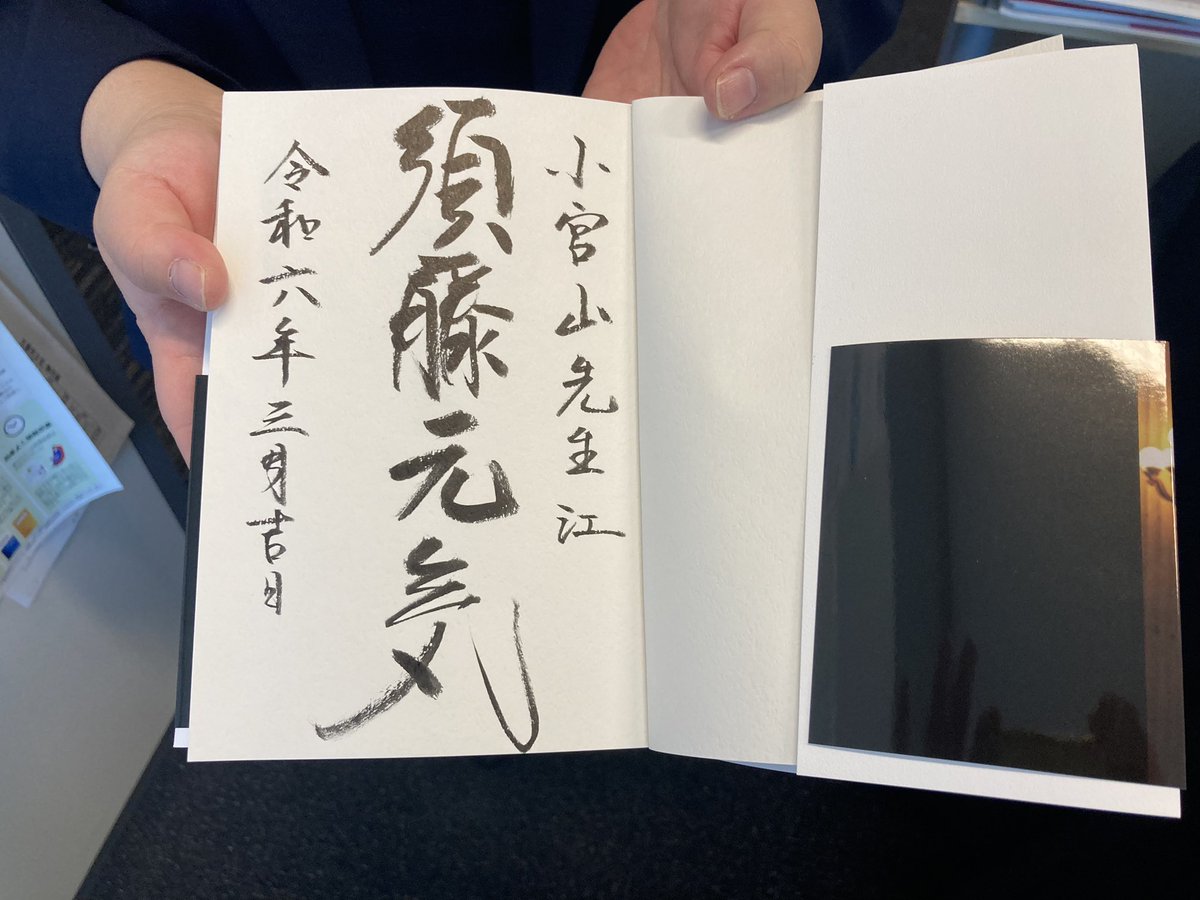 小宮山先生江
須藤元気
令和六年三月吉日